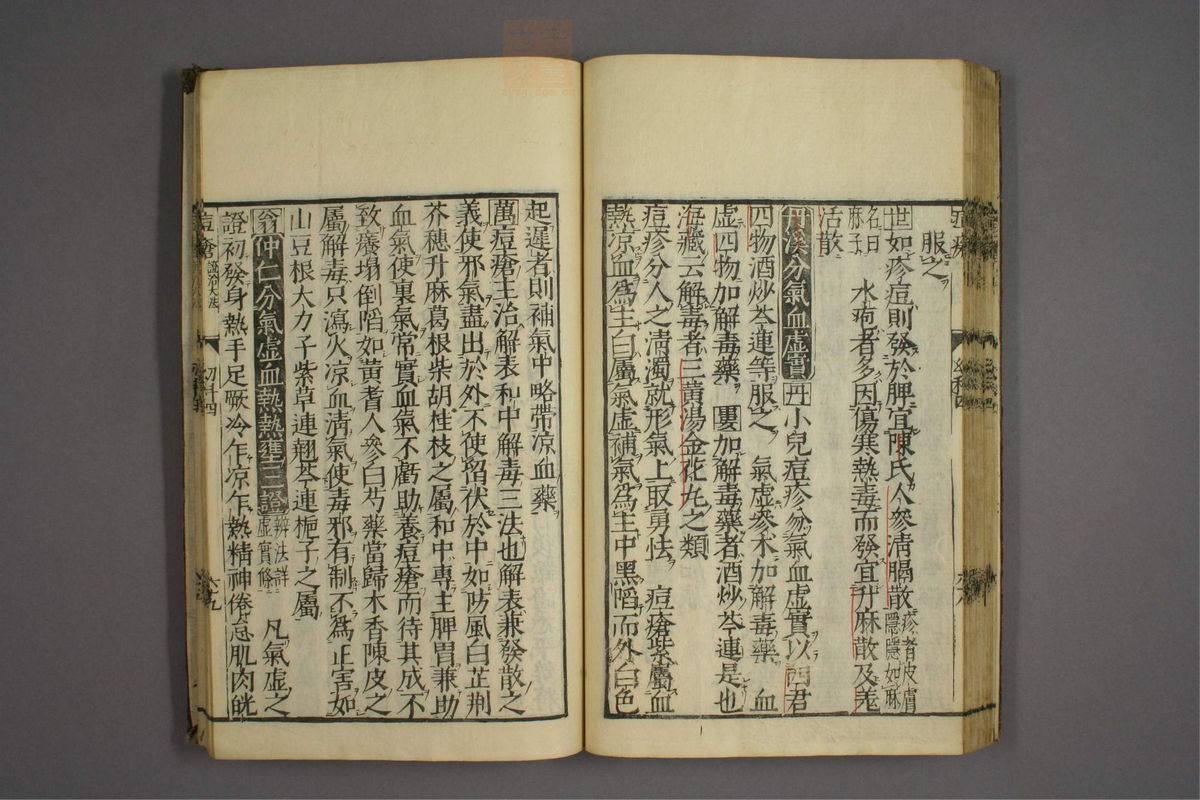 服之
世如疹痘則發於脾宜陳氏人參清膈散 疹者皮膚隱隱如麻
名曰麻子 水疱者多因傷寒熱毒而發宜升麻散及羌
活散
丹溪分氣血虛實 丹 小兒痘疹分氣血虛實以四君
四物酒炒芩連等服之 氣虛參朮加解毒藥 血
虛四物加解毒藥 加解毒藥者酒炒芩連是也
海藏云解毒者三黃湯金花丸之類
痘疹分人之清濁就形氣上取勇怯 痘瘡紫屬血
熱凉血為主白屬氣虛補氣為主中黑陷而外白色
起遲者則補氣中略帶凉血藥
萬痘瘡主治解表和中解毒三法也解表兼發散之
義使邪氣盡出於外不使留伏於中如防風白芷荆
芥穗升麻葛根柴胡桂枝之屬和中專主脾胃兼助
血氣使裏氣常實血氣不虧助養痘瘡而待其成不
致癢塌倒陷如黃耆人參白芍藥當歸木香陳皮之
屬解毒只瀉火凉血清氣使毒邪有制不為正害如
山豆根大力子紫草連翹芩連梔子之屬
翁仲仁分氣虛血熱熱壅三證 辨法詳虛實條 凡氣虛之
證初發身熱手足厥冷乍凉乍熱精神倦怠肌肉㿠
痘瘡